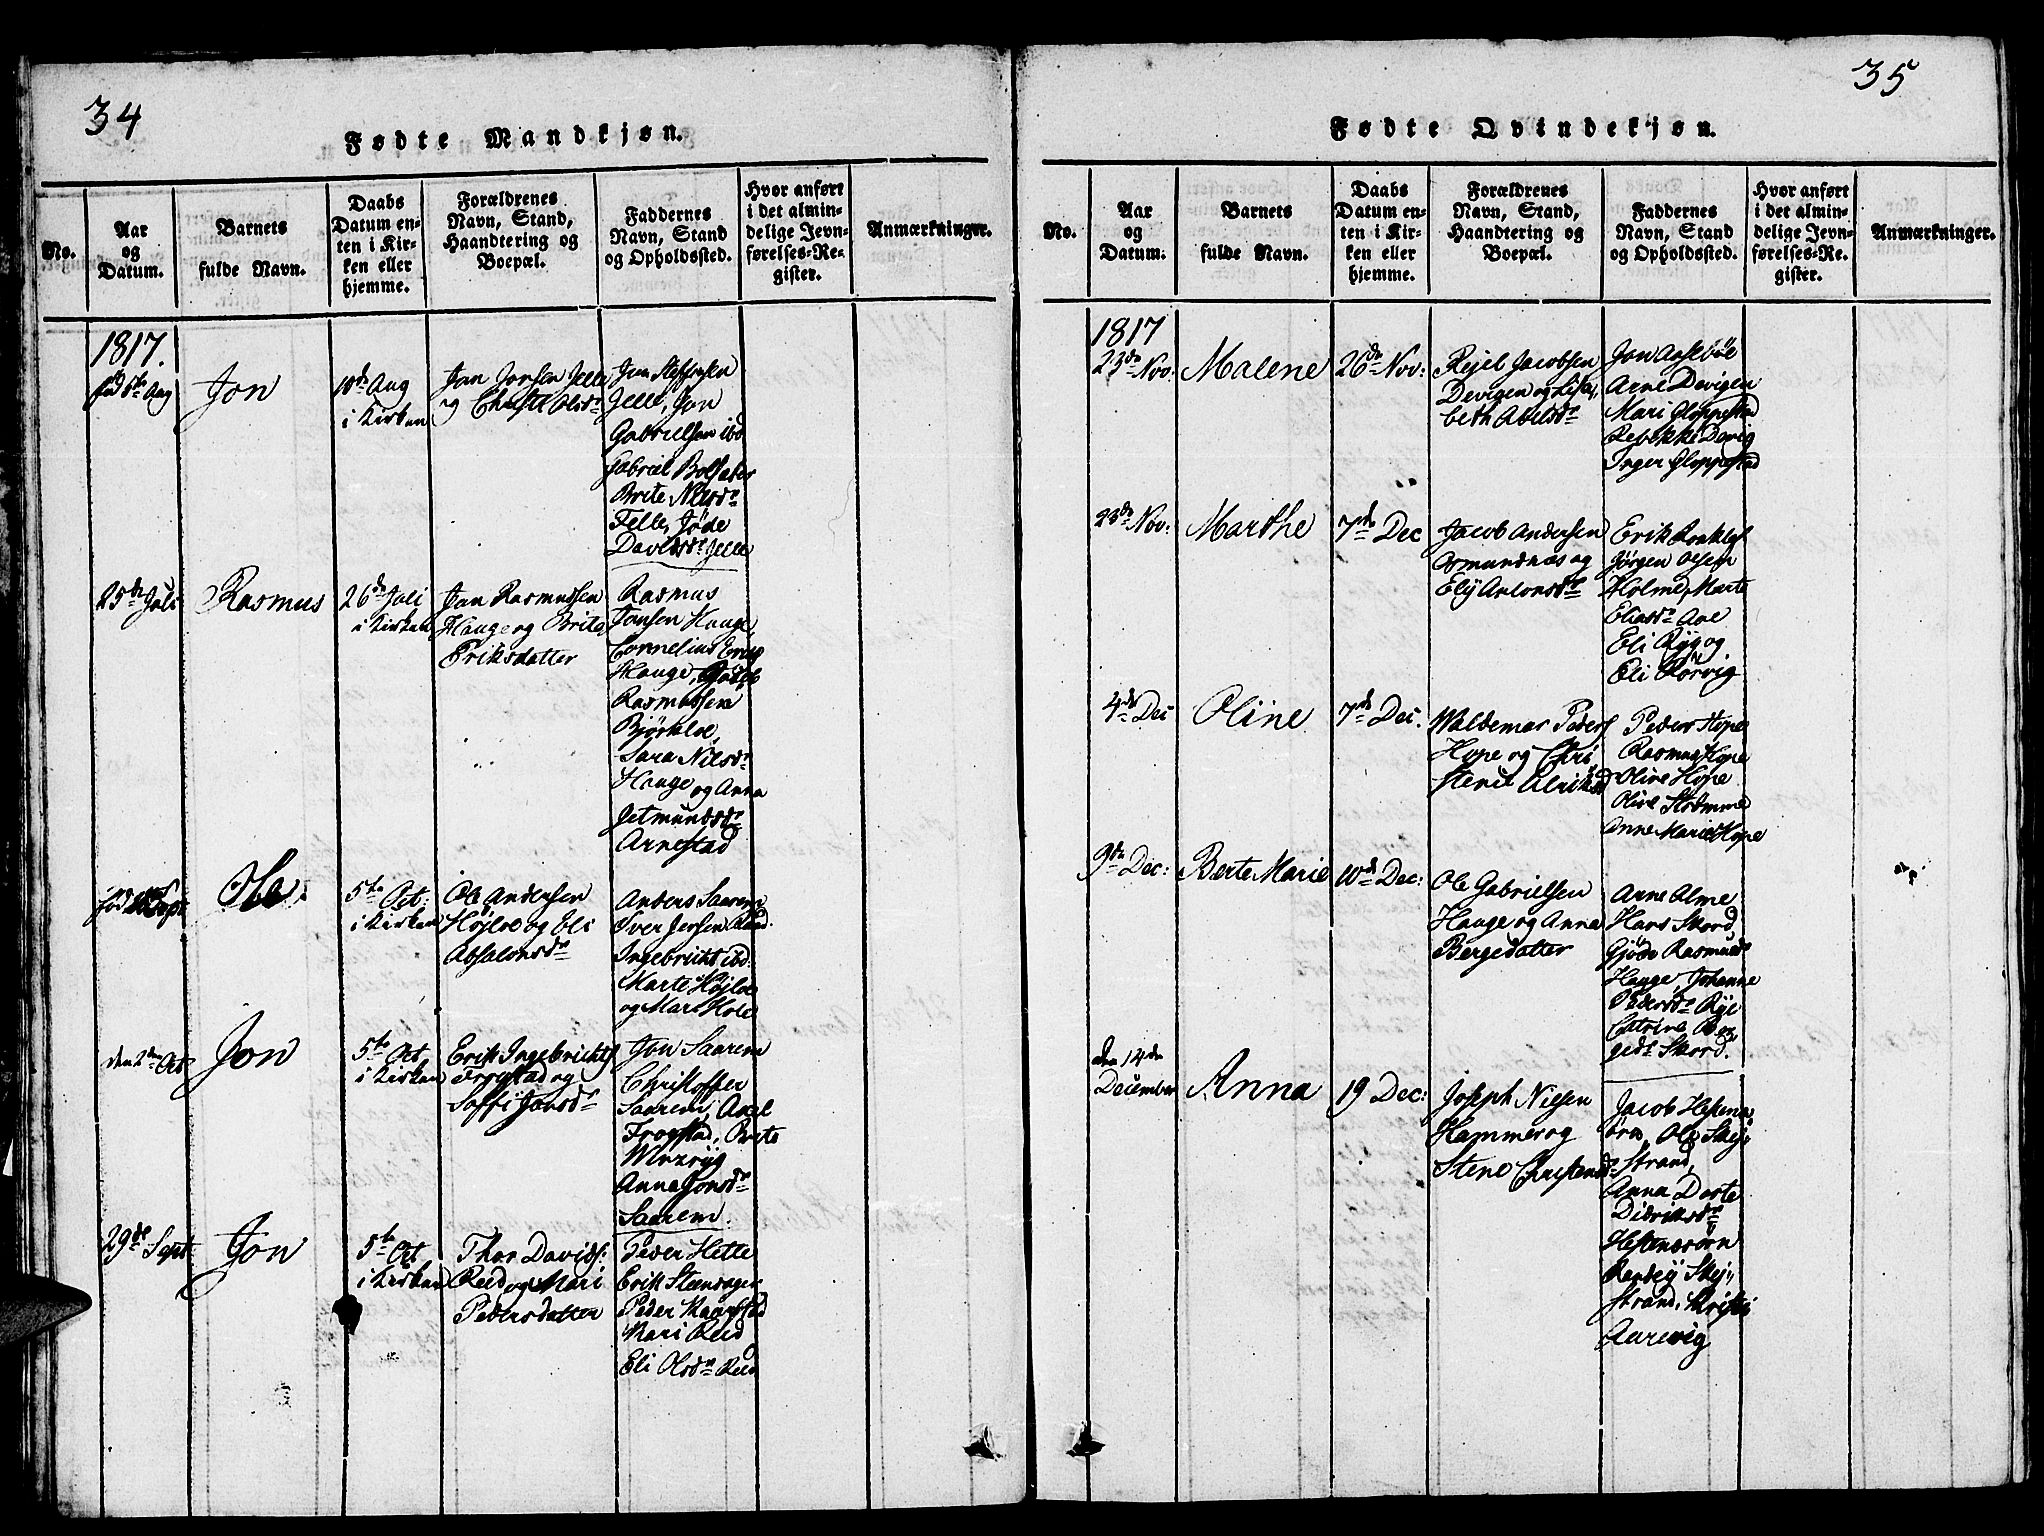 34
Fødte Mandkjøn.
No.
Aar
og
Datum.
Barnets
fulde Navn.
Daabs
Datum en-
ten i Kir-
ken eller
hjemme.
Forældrenes
Navn, Stand,
Haandtering og
Boepæl.
Faddernes
Navn, Stand
og Opholdssted.
Hvor anført
i det almin-
delige Jevn-
førelses-Re-
gister.
Anmærkninger.
1817.
fød 8de Aug
Jon
10de Aug
i Kirken
Jan Jonsen Jelle
og Christi Olsdr
Jelle, Jon
Gabrielsen ibd
Gabriel
Brite Nilsdr
Jelle, Jøde
Davidsdr Jelle
25de Juli
Rasmus
26de Juli
i Kirken
Jan Rasmussen
Hauge og Brite
Eriksdatter
Rasmus
Jansen Hauge,
Cornelius
Hauge,
Rasmussen
Bjørkloe,
Sara Nilsdr
Hauge og Anna
Jetmundsdr
Arnestad
fød Sept
Ole
5te Oct:
i Kirken
Ole Andersen
Højloe og Eli
Absalonsdr
Anders Saarem
Iver Jensen
Ingebricht ibd:
Marte Højloe
og Mari Hole
den 2de Oct
Jon
5te Oct
i Kirken
Erik Ingebrichts
Frogstad og
Soffi Jonsdr
Jon Saarem
Christoffer
Saarem, Axel
Frogstad, Brite
Myxrÿg
Anne Jonsdr
Saarem.
29de Sept
Jon
5te Oct
i Kirken
Thor Davids:
Reed og Mari
Pedersdatter
Peder Hette
Erik Steensager
Peder Maarstad
Mari Reed
Eli Olsdr Reed
35
Fødte Qvindekjøn.
No.
Aar
og
Datum.
Barnets
fulde Navn.
Daabs
Datum en-
ten i Kir-
ken eller
hjemme.
Forældrenes
Navn, Stand,
Haandtering og
Boepæl.
Faddernes
Navn, Stand
og Opholdssted.
Hvor anført
i det almin-
delige Jevn-
førelses-Re-
gister.
Anmærkninger.
1817
23de Nov:
Malene
26de Nov:
Rejel Jacobsen
Devigen og Lisa,,
beth Abelsdr
Jon Aasebøe
Arne Devigen
Mari Gloppestad
Rebekke Devig
Inger Gloppestad
23de Nov:
Marthe
7de Dec
Jacob Andersen
Osmundnæs og
Elÿ Antonsdr
Erik
Jørgen Olsen
Holme, Marte
Eliasdr Aae
Eli Rÿg og
Eli Rørvig
4de Dec
Oline
7de Dec.
Waldemar Peders
Hope og Chri
stence Alriksd
Peder Hope
Rasmus Hope
Olive Hope
Olive Strømme
Anne Marie Hope
9de Dec:
Berte Marie
10de Dec:
Ole Gabrielsen
Hauge og Anna
Bergedatter
Arne Alme
Hans Skord
Gjøde Rasmusd
Hauge, Johanne
Pedersdr Rÿe
Catrine Ber
gedr Skord.
den 14de
December
Anna
19 Dec:
Joseph Nilsen
Hammer og
Stene Christensdr
Jacob Hestenæs
øren, Ole Skej
Strand,
Anna Dorte
Didriksdr
Hestenesøren
Randej Skej,,
Strand, Kristi
Aurevig